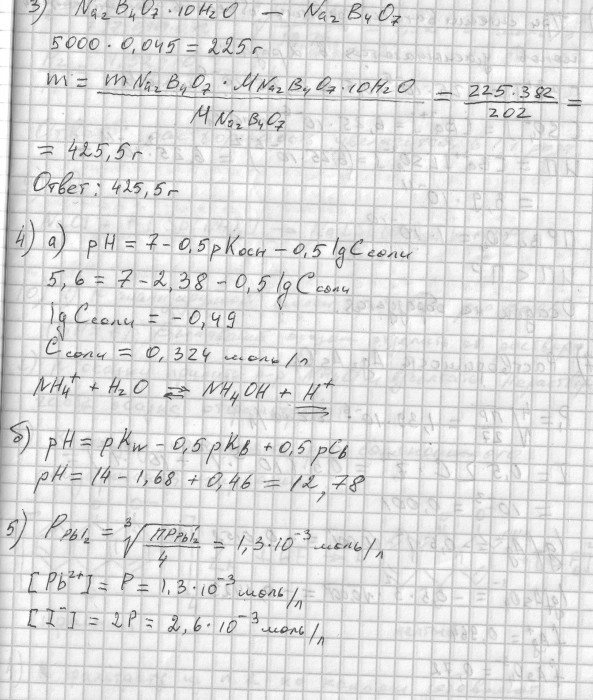 3) Na₂B₄O₇·10H₂O — Na₂B₄O₇
5000 · 0,045 = 225 г
m = mNa₂B₄O₇ · MNa₂B₄O₇·10H₂O / MNa₂B₄O₇ = 225·382 / 202 =
= 425,5 г
Ответ: 425,5 г
4) а) pH = 7 - 0,5pKосн - 0,5 lg Cсоли
5,6 = 7 - 2,38 - 0,5 lg Cсоли
lg Cсоли = -0,49
Cсоли = 0,324 моль/л
NH₄⁺ + H₂O ⇄ NH₄OH + H⁺
б) pH = pKw - 0,5 pKb + 0,5 pCb
pH = 14 - 1,68 + 0,46 = 12,78
5) P PbI₂ = ∛(ПР PbI₂ / 4) = 1,3·10⁻³ моль/л
[Pb²⁺] = P = 1,3·10⁻³ моль/л
[I⁻] = 2P = 2,6·10⁻³ моль/л